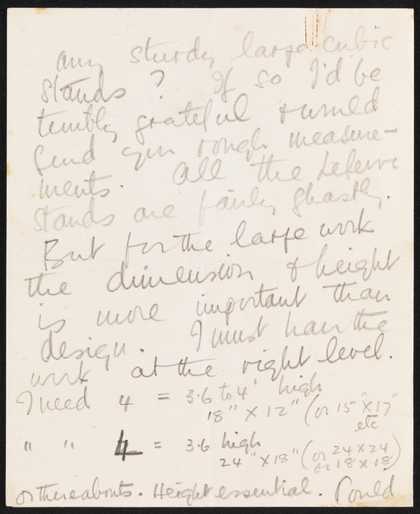 any sturdy large cubic
stands? If so I'd be
terribly grateful & would
send you rough measure-
ments. All the Lefevre
stands are fairly ghastly.
But for the large work
the dimension & height
is more important than
design. I must have the
work at the right level.
I need 4 = 3.6 to 4' high
18" X 12" (or 15" X 17"
etc
" " 4 = 3.6 high
24" X 18" (or 24 X 24
or 18 X 18)
or thereabouts. Height essential. Could